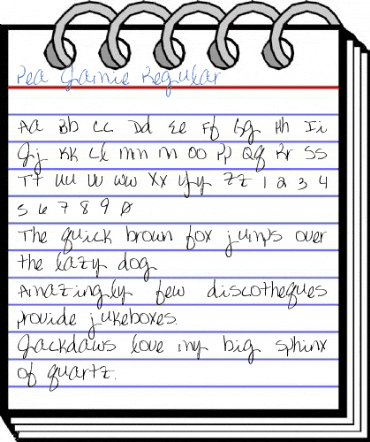 Pea Jamie Regular
Aa Bb Cc Dd Ee Ff Gg Hh Ii
Jj Kk Ll Mm Nn Oo Pp Qq Rr Ss
Tt Uu Vv Ww Xx Yy Zz 1 2 3 4
5 6 7 8 9 0
The quick brown fox jumps over
the lazy dog
Amazingly few discotheques
provide jukeboxes.
Jackdaws love my big sphinx
of quartz.